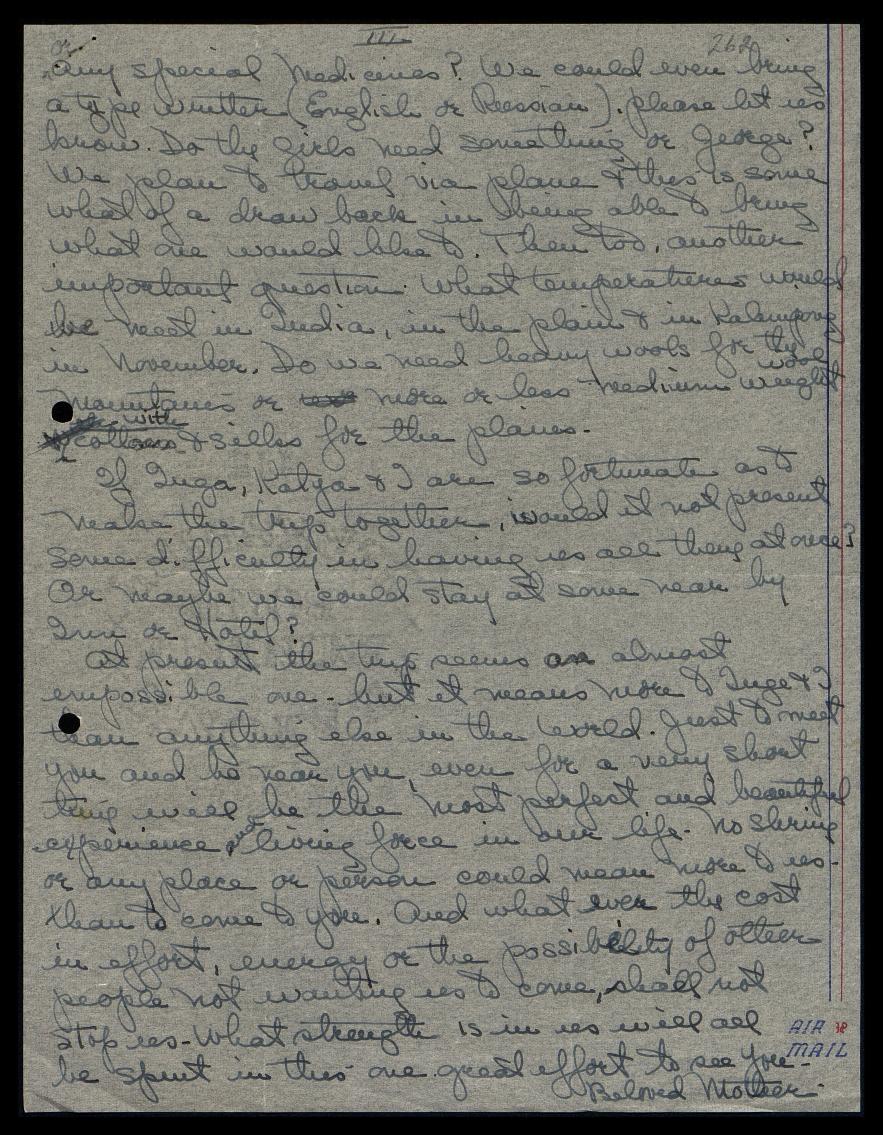 III
262
or any special Medicines? We could even bring
a type writter (English or Russian). please let us
know. Do the girls need something or George?
We plan to travel via plane & this is some
what of a draw back in being able to bring
what one would like to. Then too, another
important question. What temperatures would
we meet in India, in the plain & in Kalimpong
in November. Do we need heavy wools for the
mountains or more or less medium weight wool
with cottons & silks for the planes.
If Inga, Katya & I are so fortunate as to
make the trip together, would it not present
some difficulty in having us all there at once?
Or maybe we could stay at some near by
Inn or Hotel?
At present the trip seems an almost
empossible one - but it means more to Inge & I
than anything else in the world. Just to meet
you and be near you, even for a very short
time will be the most perfect and beautiful
experience and living force in our life. No shring
or any place or person could mean more to us
than to come to you. And what ever the cost
in effort, energy or the possibility of other
people not wanting us to come, shall not
stop us - What strength is in us will all
be spent in this one great effort to see you -
Beloved Mother.
AIR
MAIL